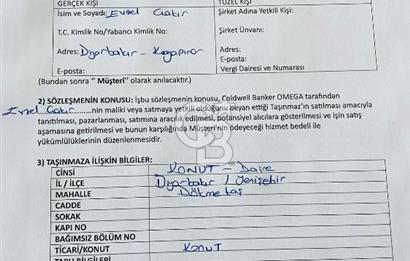 GERÇEK KİŞİ
TÜZEL KİŞİ
İsim ve Soyadı:
Şirket Adına Yetkili Kişi:
T.C. Kimlik No/Yabancı Kimlik No:
Şirket Ünvanı:
Adres: Diyarbakır - Kayapınar
Adres:
E-posta:
E-posta:
Vergi Dairesi ve Numarası
(Bundan sonra " Müşteri" olarak anılacaktır.)
2) SÖZLEŞMENİN KONUSU: İşbu sözleşmenin konusu, Coldwell Banker OMEGA tarafından
nin maliki veya satmaya yetkili olduğunu beyan ettiği Taşınmaz'ın satılması amacıyla
tanıtılması, pazarlanması, satımına aracılık edilmesi, potansiyel alıcılara gösterilmesi ve işin satış
aşamasına getirilmesi ve bunun karşılığında Müşteri'nin ödeyeceği hizmet bedeli ile
yükümlülüklerinin düzenlenmesidir.
3) TAŞINMAZA İLİŞKİN BİLGİLER:
CİNSİ KONUT - Daire
İL / İLÇE Diyarbakır / Yenişehir
MAHALLE Dökmetaş
CADDE
SOKAK
KAPI NO
BAĞIMSIZ BÖLÜM NO
TİCARİ/KONUT KONUT
TAPU BİLGİLERİ